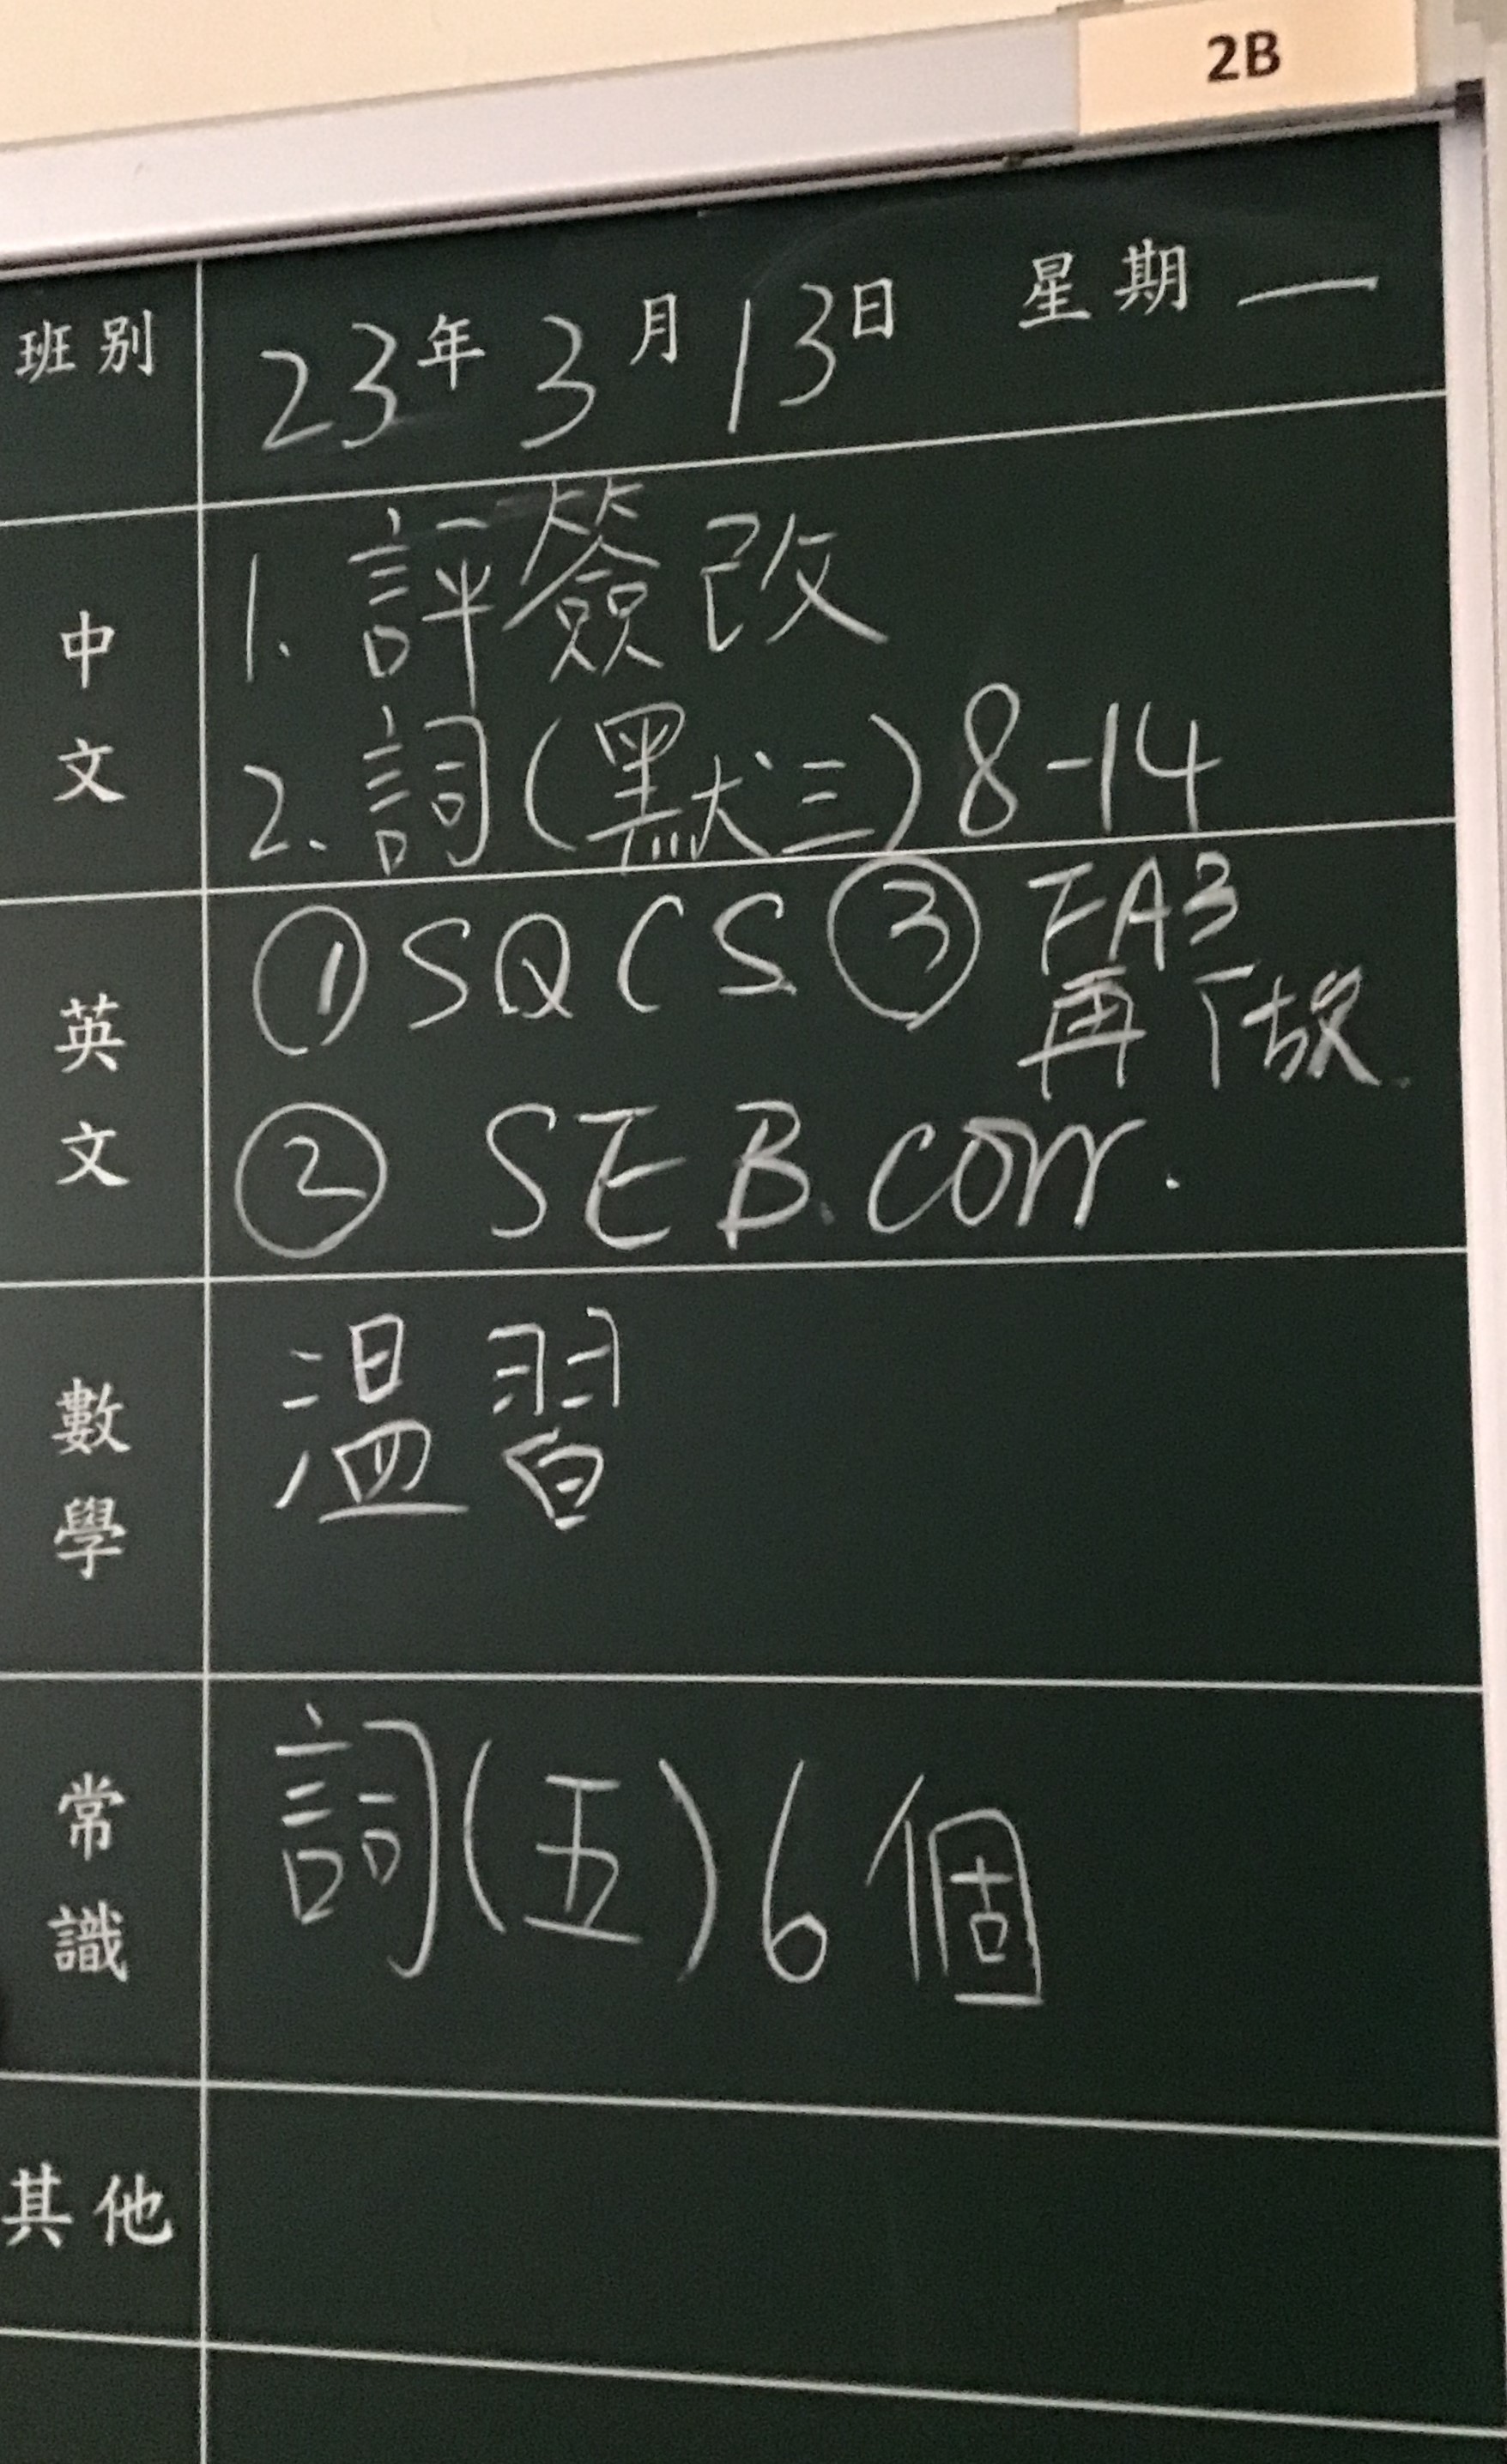 2B
班別 23年3月13日 星期一
中文
1. 評簽改
2. 詞(默三)8-14
英文
① SQCS ③ FA3
再做
② SEB. corr.
數學
溫習
常識
詞(五)6個
其他